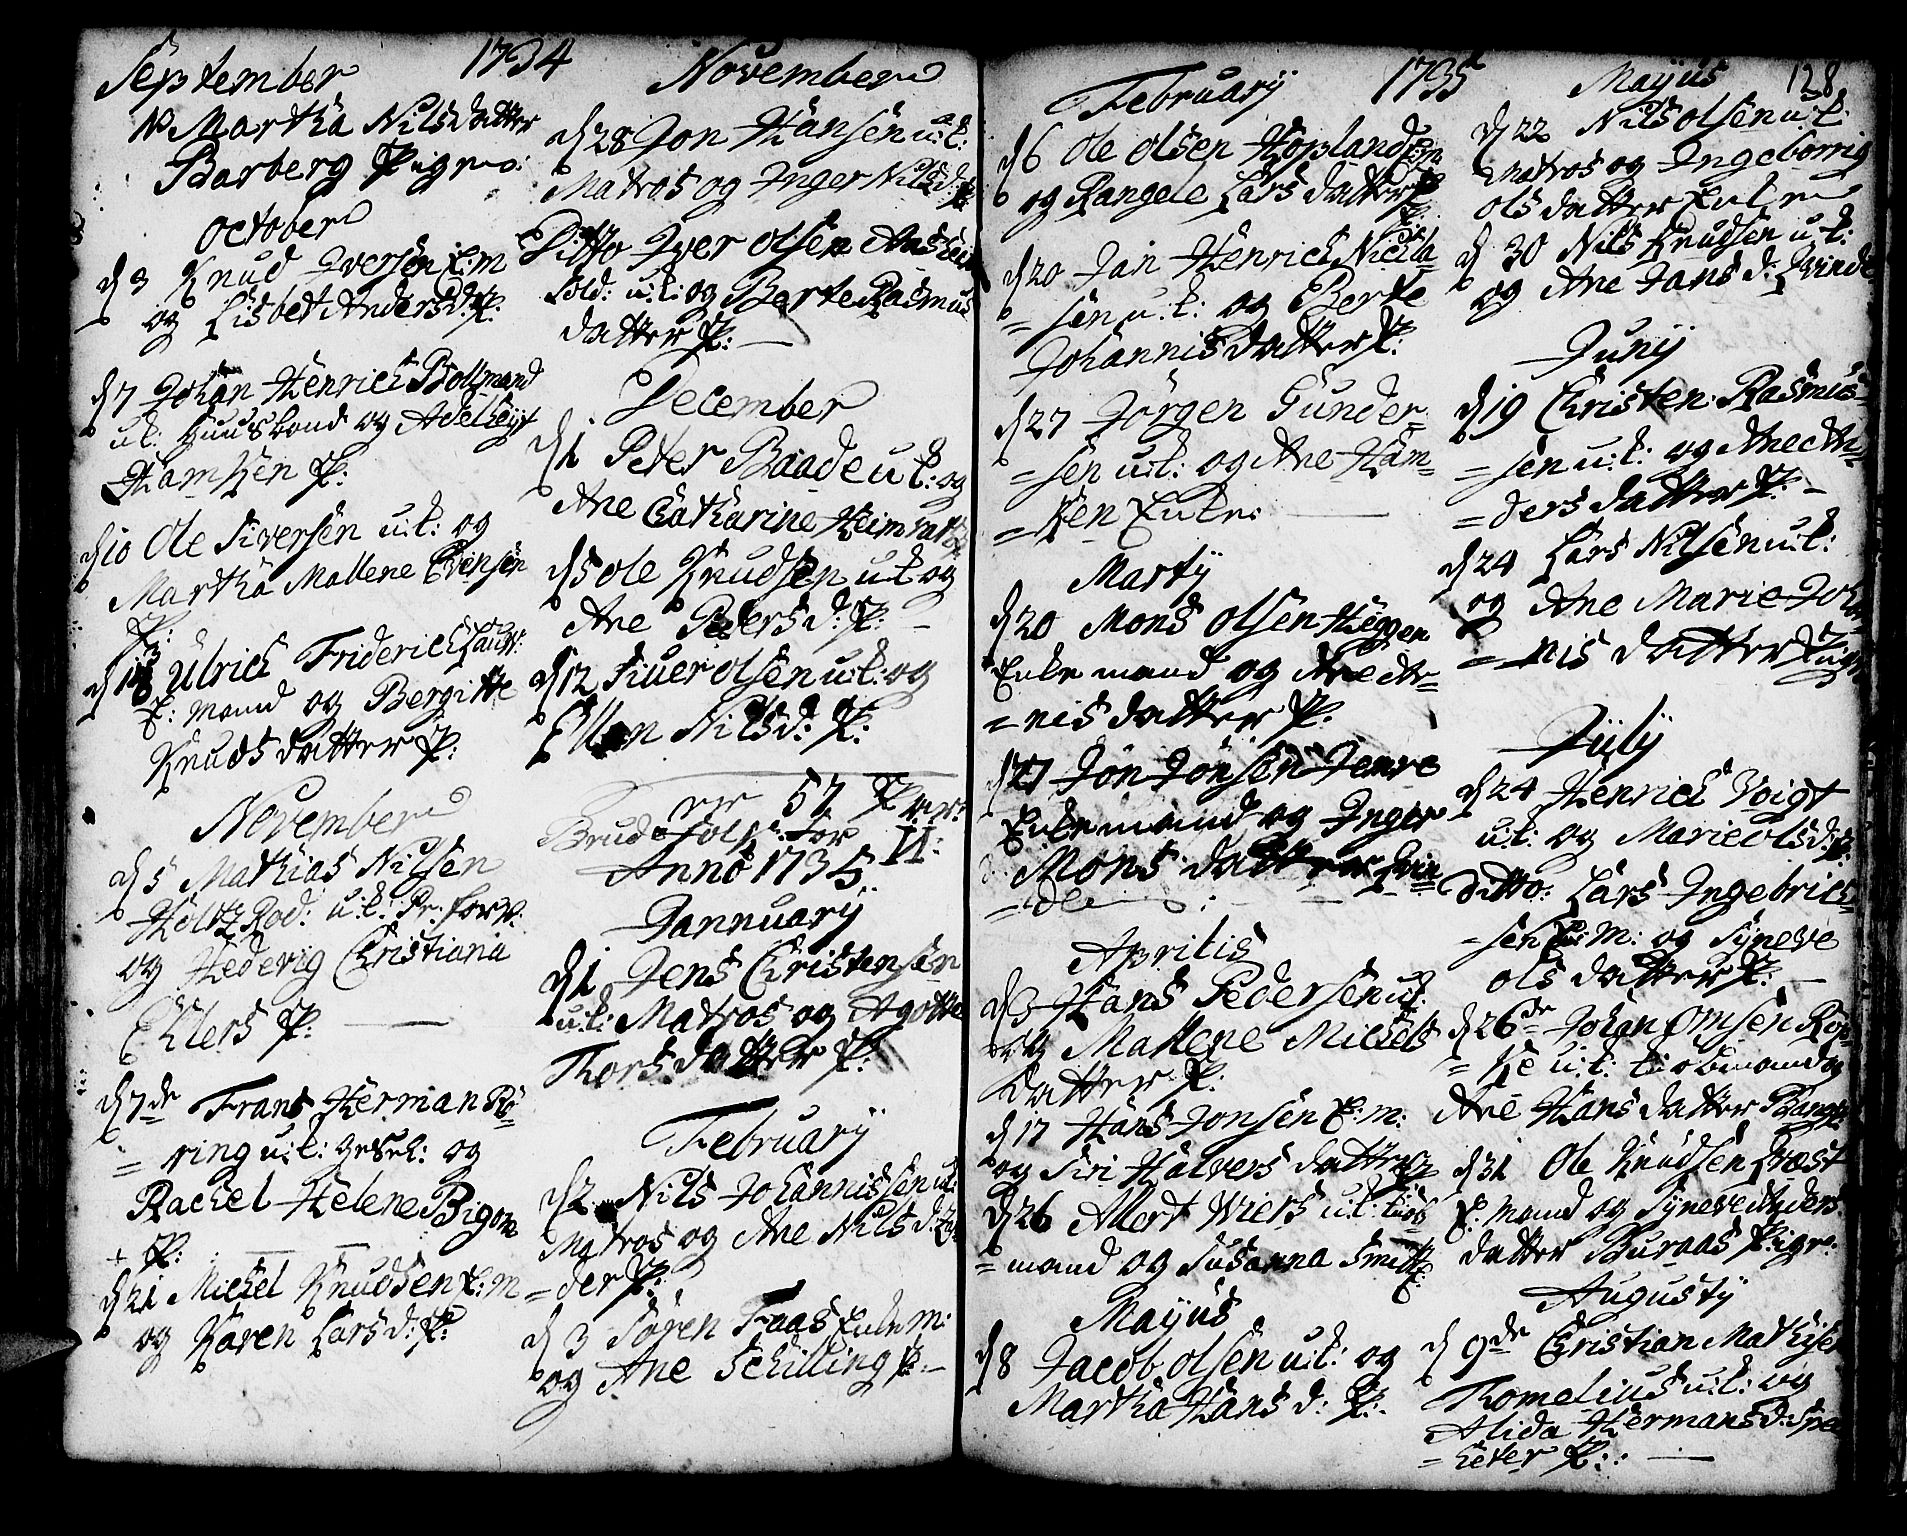 September 1734
No Martha Nilsdatter
Barberg Pige:
October
d 3 Knud Iversen E: m
og Lisbet Andersd: P:
d 7 Johan Henrich Boltmand
u.k: Huusbond og Adelheyt
Hamken P:
d 10 Ole Siversen u.k: og
Martha Mallene Evensen
P:
d 18 Ulrich Friderich
E: mand og Bergitte
Knudsdatter P:
November
d 5 Mathias Nilsen
Holtz Rod: u.k: Pr: forv:
og Hedevig Christiana
Ehlers P:
d 7de Frans Herman Rö
= ring u.k: gesel: og
Rachel Helene Bigom
+ P:
d 21 Michel Knudsen E: m
og Karen Larsd: P:
November
d 28 Jon Hansen u.k:
Matros og Inger Nilsd: P:
Ditto Iver Olsen
Sold: u.k: og Berte Rasmus
datter P:
December
d 1 Peter Baade u.k: og
Ane Catharine
d 5 Ole Knudsen u.k og
Ane Peders d: P:
d 12 Siver Olsen u.k: og
Ellen Nilsd: P:
57 Par
Brude folk for
Anno 1735
Jannuarij
d 1 Jens Christensen
u.k: Matros og Agotte
Thorsdatter P:
February
d 2 Nils Johannissen u.k:
Matros og Ane Nilsd:
= der P:
d 3 Sören Faas Enke m:
og Ane Schilling P:
February 1735
d 6 Ole Olsen Hopland E: m
og Rangele Lars datter P:
d 20 Jan Henrich Nicola
= sen u.k: og Berte
Johannis datter P:
d 27 Jörgen Gunder
= sen u.k: og Ane Ham=
= ken Enke:
Martij
d 20 Mons Olsen Heggen
Enke mand og Ane Ar=
= nis datter P:
d 27 Jon Jonsen Femre
Enke mand og Inger
Mons datter Qvin=
= de
Aprilis
d 3 Hans Pedersen u.k:
og Mallene Michels
datter P:
d 17 Hans Jonsen E: m:
og Siri Halvers datter
d 26 Allert Wiers u.k: kiöb
= mand og Susanna Smitt
Majus
d 8 Jacob Olsen u.k: og
Martha Hans d: P:
Majus 128
d 22 Nils Olsen u.k
Matros og Ingeborrig
Ols datter Enke
d 30 Nils Knudsen u.k:
og Ane Jans d: Qvinde
Junij
d 19 Christen Rasmus=
= sen u.k: og Ane An=
= ders datter P:
d 24 Lars Nilsen u.k:
og Ane Marie Joha
= nis datter Pige
Julij
d 24 Henrich Voigt
u.k: og Marie Olsd: P:
Ditto: Lars Ingebrich=
= sen E: M: og Syneve
Ols datter P:
d 26de Johan Omsen
= ke u.k: kiöbmand og
Ane Hans datter
d 31 Ole Knudsen
E: mand og Syneve
datter Buraas Pige:
Augustij
d 9de Christian Mathisen
Thomelius u.k: og
Alida Hermansd: Spre
= keler P: